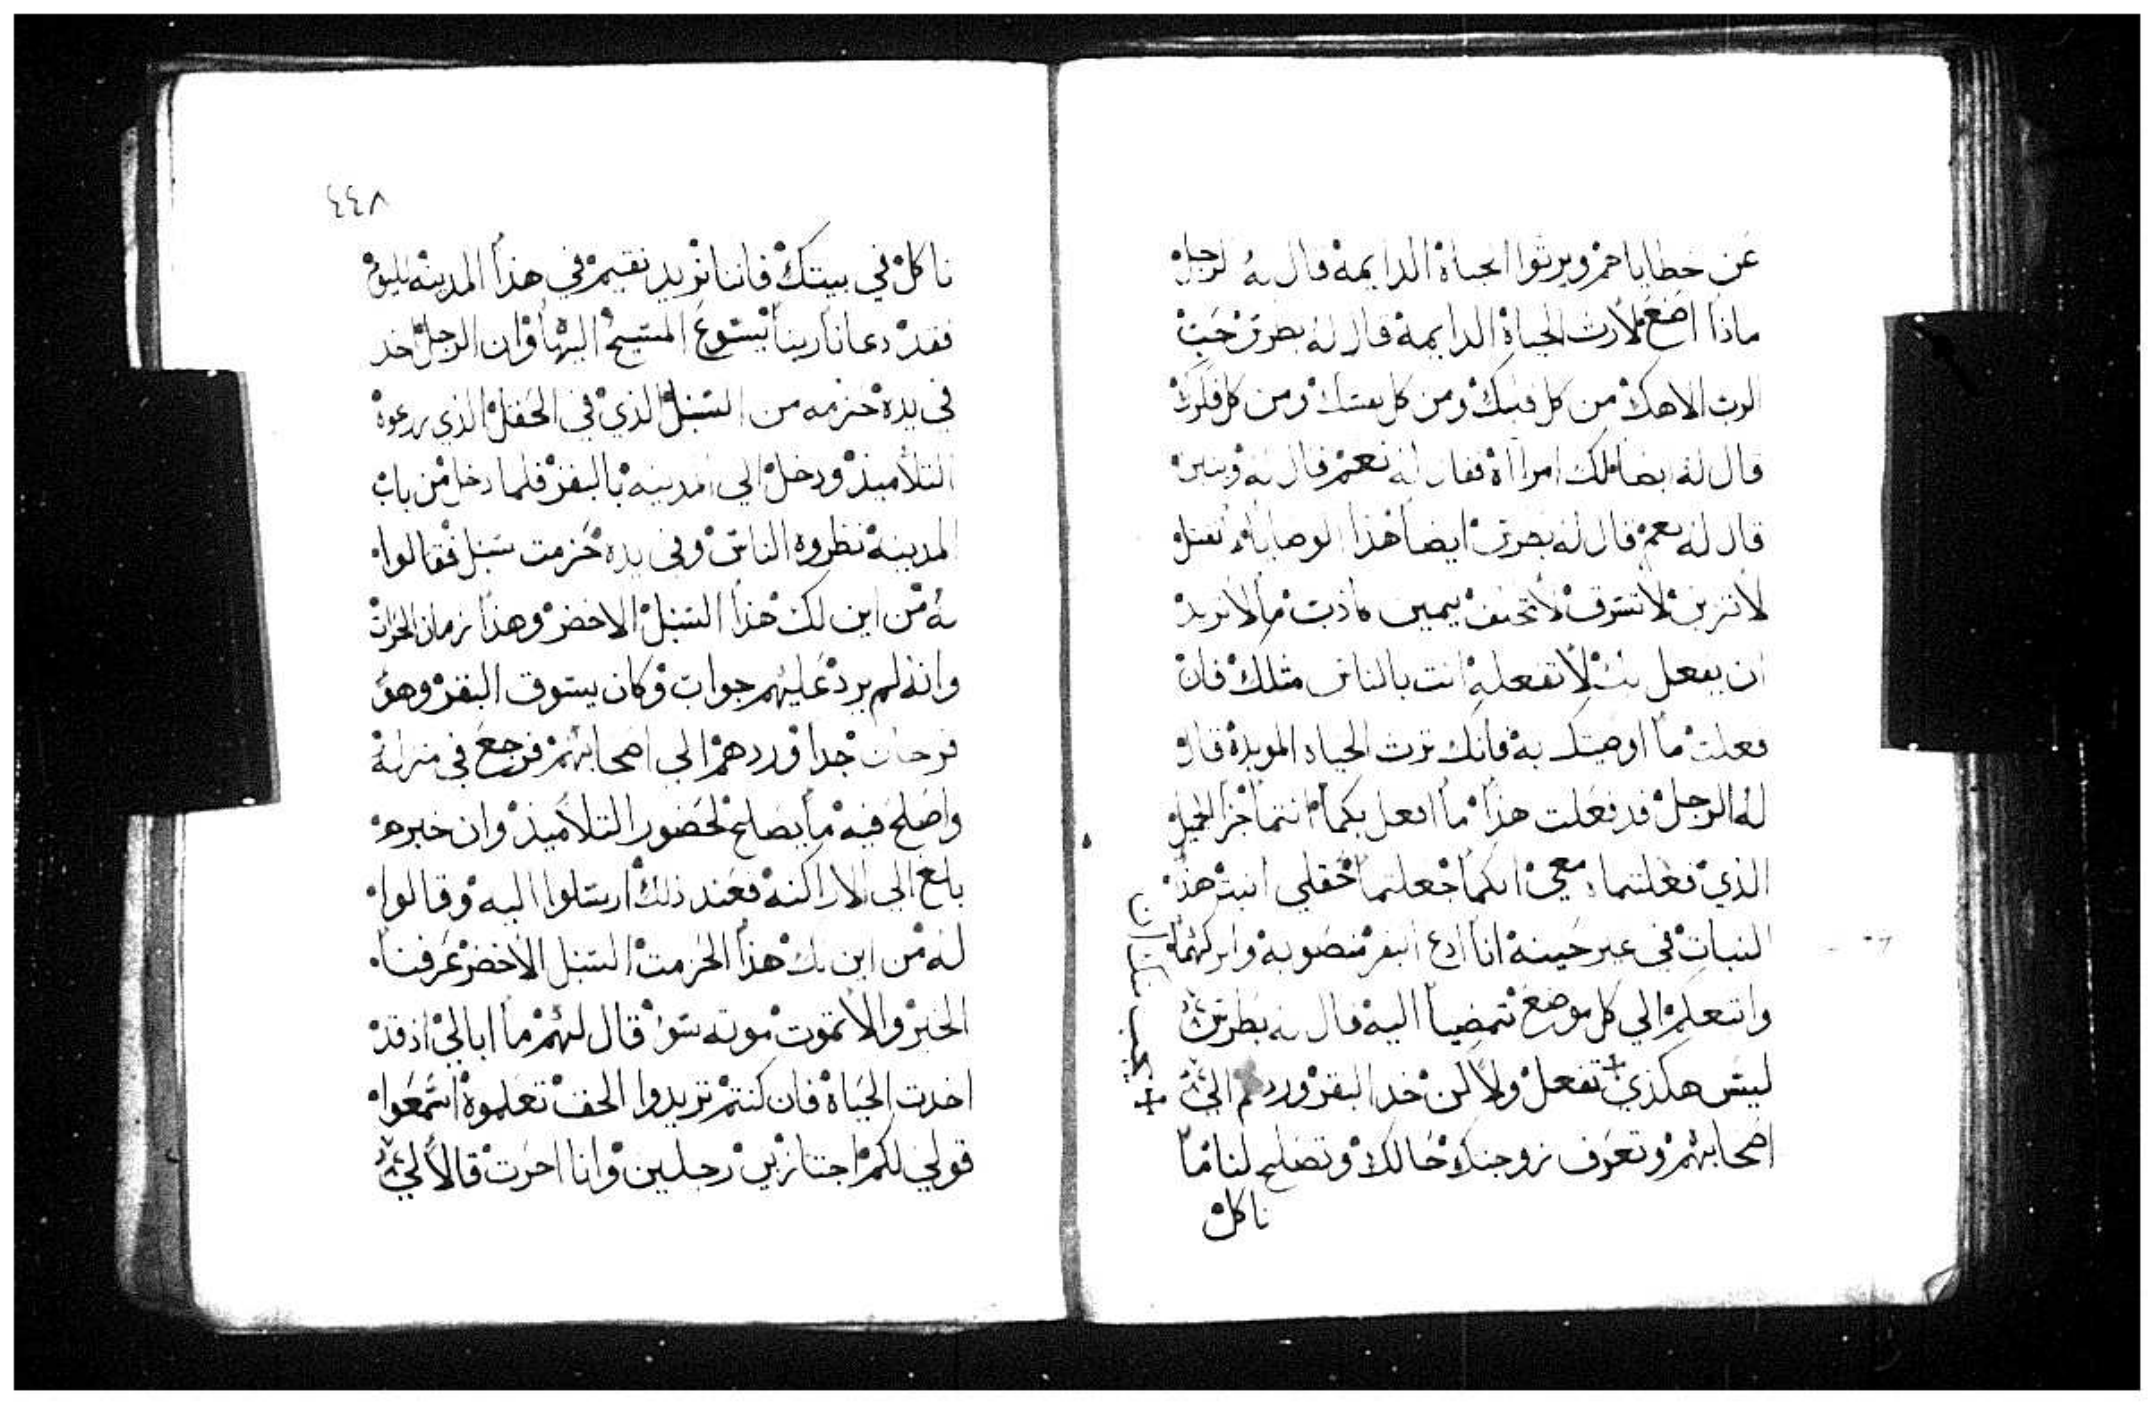 عن خطاياهم ويرثوا الحياة الدايمة قال له الرجل
ماذا اصنع لأرث الحياة الدايمة قال له بطرس حب
الرب الاهك من كل قلبك ومن كل نفسك ومن كل فكرك
قال له ايضا ملك امرااة فقال له نعم قال له وبنين
قال له نعم قال له بطرس ايضا هذا الوصايا لا تقتل
لأ تزني لأ تسرق لأ تحلف يمين كاذب ما لأ تريد
ان يفعل بك لأ تفعله انت بالناس مثلك فان
فعلت ما اوصيتك به فانك ترث الحياه الموبدة قال
له الرجل قد فعلت هذا ما افعل بكما انتما جزا الجميل
الذي فعلتما معي انكما جعلتما حقلي انبت هذ
النبات في غير حينه انا ادع البقر منصوبة واتركهما
واتبعكم الي كل موضع تمضيا اليه قال له بطرس
ليس هكذي تفعل ولأكن خد البقر وردهم الي
اصحابهم وتعرف زوجتك حالك وتصلح لنا ما
ناكل
٤٤٨
ناكل في بيتك فاننا نريد نقيم في هذا المدينه اليوم
فقد دعانا ربنا يسوع المسيح اليها وان الرجل اخد
في يده حزمه من السنبل الذي في الحقل الذي زرعوه
التلأميذ ودخل الي المدينه بالبقر فلما دخل من باب
المدينة نظروه الناس وفي يده حزمت سنبل فقالوا
له من اين لك هذا السنبل الاخضر وهذا زمان الحرات
وانه لم يرد عليهم جواب وكان يسوق البقر وهو
فرحان جدا وردهم الي اصحابهم فرجع في منزله
واصلح فيه ما يصلح لحضور التلأميذ وان خبره
بلغ الي الاراكنه فعند ذلك ارسلوا اليه وقالوا
له من اين لك هذا الحزمت السنبل الأخضر عرفنا
الخبر والأ تموت موته سو قال لهم ما ابالي اذ قد
اخدت الحياة فان كنتم تريدوا الحق تعلموة اسمعوا
قولي لكم اجتاز بي رجلين وانا احرت قالأ لي